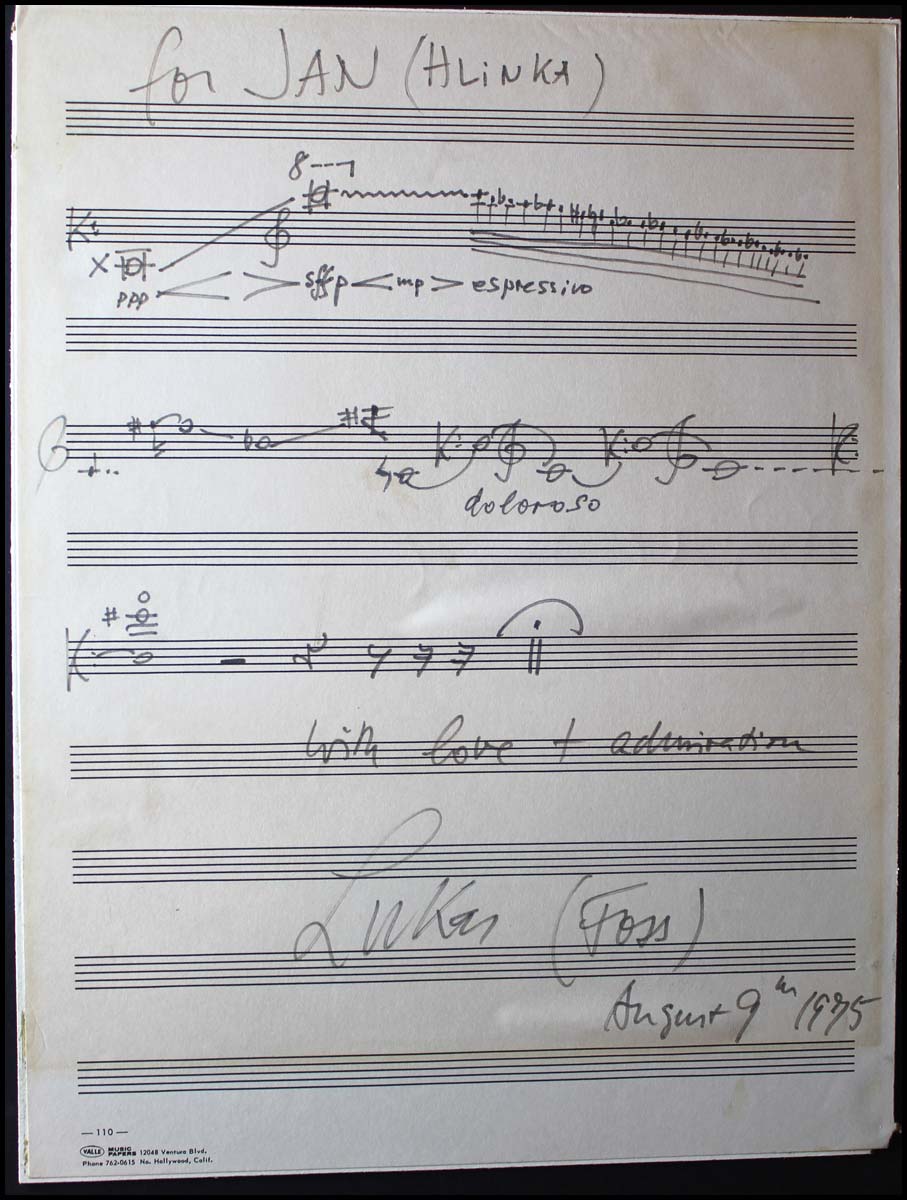 for JAN (HLINKA)
8---
X
ppp sffp mp espressivo
doloroso
with love + admiration
Lukas (Foss)
August 9th 1975
— 110 —
VALLE MUSIC PAPERS 12048 Ventura Blvd.
Phone 762-0615 No. Hollywood, Calif.